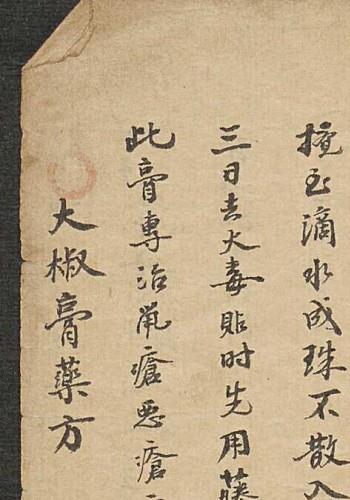 撹至滴水成珠不散入
三日去火毒貼时先用藤
此膏專治鼡瘡悪瘡
大椒膏藥方